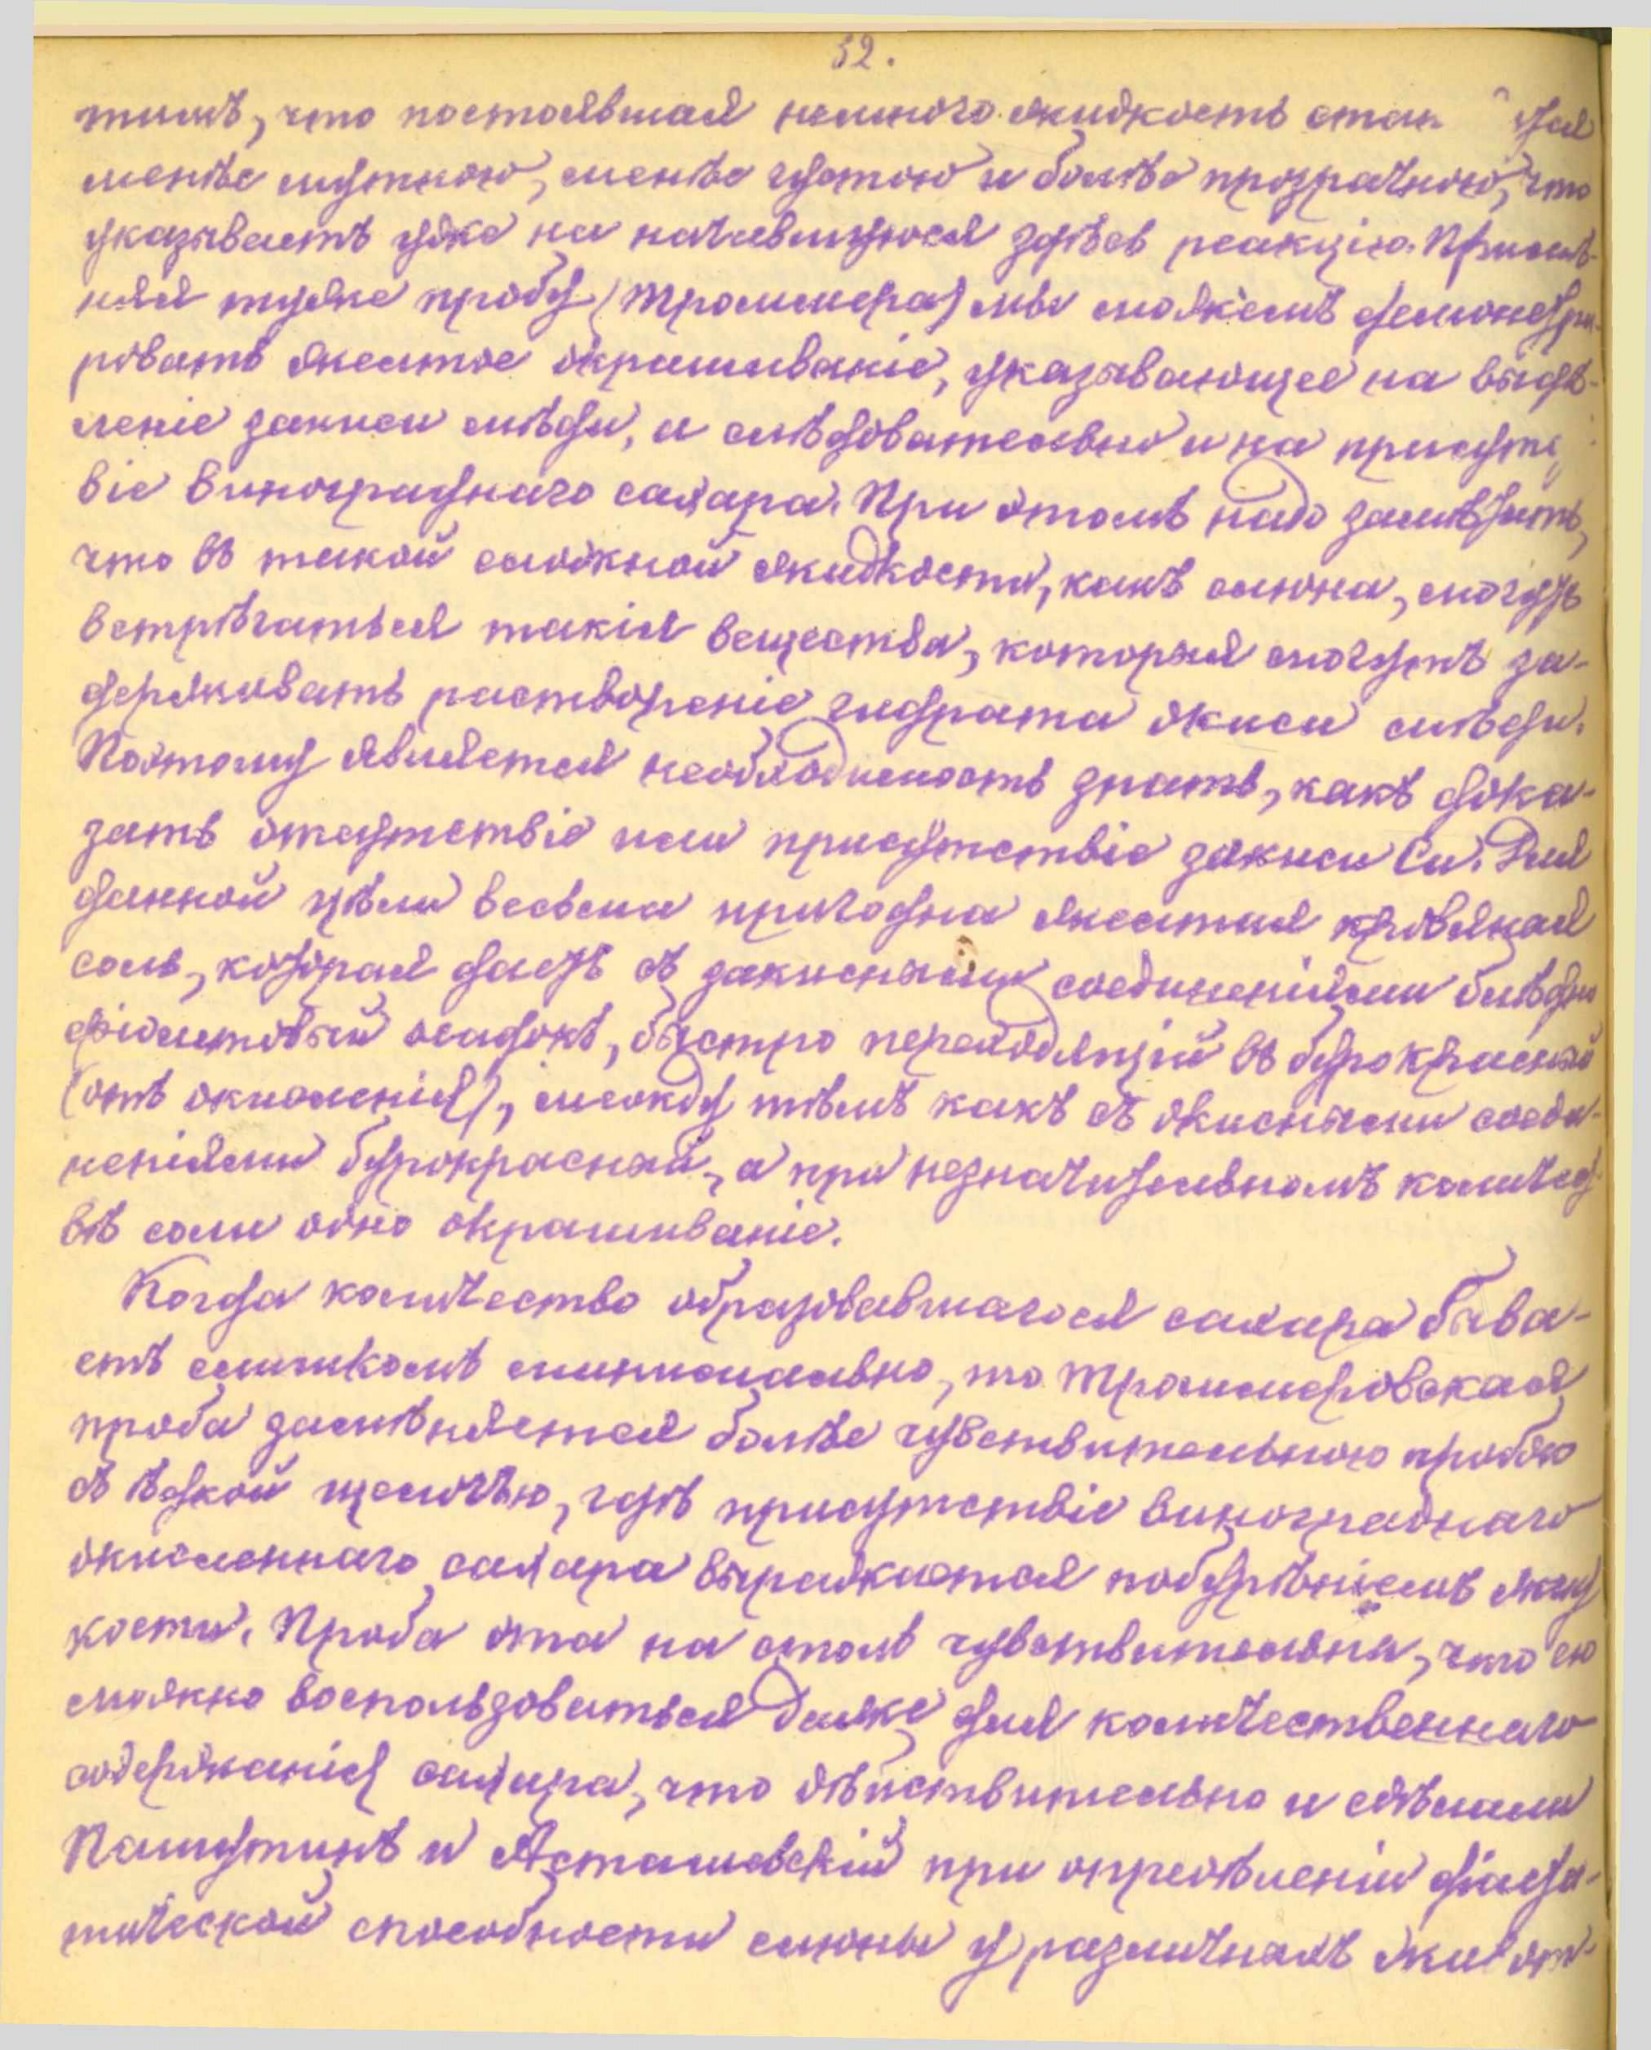 32.
тимъ, что постоявшая немного жидкость стан
менѣе мутною, менѣе густою и болѣе прозрачною, что
указываетъ уже на начавшуюся здѣсь реакцію. Примѣ-
няя туже пробу (Троммера) мы можемъ демонстри-
ровать желтое окрашиваніе, указывающее на выдѣ-
леніе закиси мѣди, и слѣдовательно и на присутст
віе винограднаго сахара. При этомъ надо замѣтить,
что въ такой сложной жидкости, какъ слюна, могутъ
встрѣчаться такія вещества, которыя могутъ за-
держивать раствореніе гидрата окиси мѣди.
Поэтому является необходимость знать, какъ дока-
зать отсутствіе или присутствіе закиси Cu. Для
данной цѣли весьма пригодна желтая кровяная
соль, которая даетъ съ закисными соединеніями блѣдно
фіолетовый осадокъ, быстро переходящій въ бурокрасный
(отъ окисленія), между тѣмъ какъ съ окисными соеди-
неніями бурокрасный, а при незначительномъ количест
вѣ соли одно окрашиваніе.
Когда количество образовавшагося сахара быва-
етъ слишкомъ минимально, то Троммеровская
проба замѣняется болѣе чувствительною пробою
съ ѣдкой щелочью, гдѣ присутствіе винограднаго
окисленнаго сахара выражается побурѣніемъ жид
кости. Проба эта на столь чувствительна, что ею
можно воспользоваться даже для количественнаго
содержанія сахара, что дѣйствительно и сдѣлали
Пашутинъ и Асташевскій при опредѣленіи діаста-
тической способности слюны у различныхъ живот-